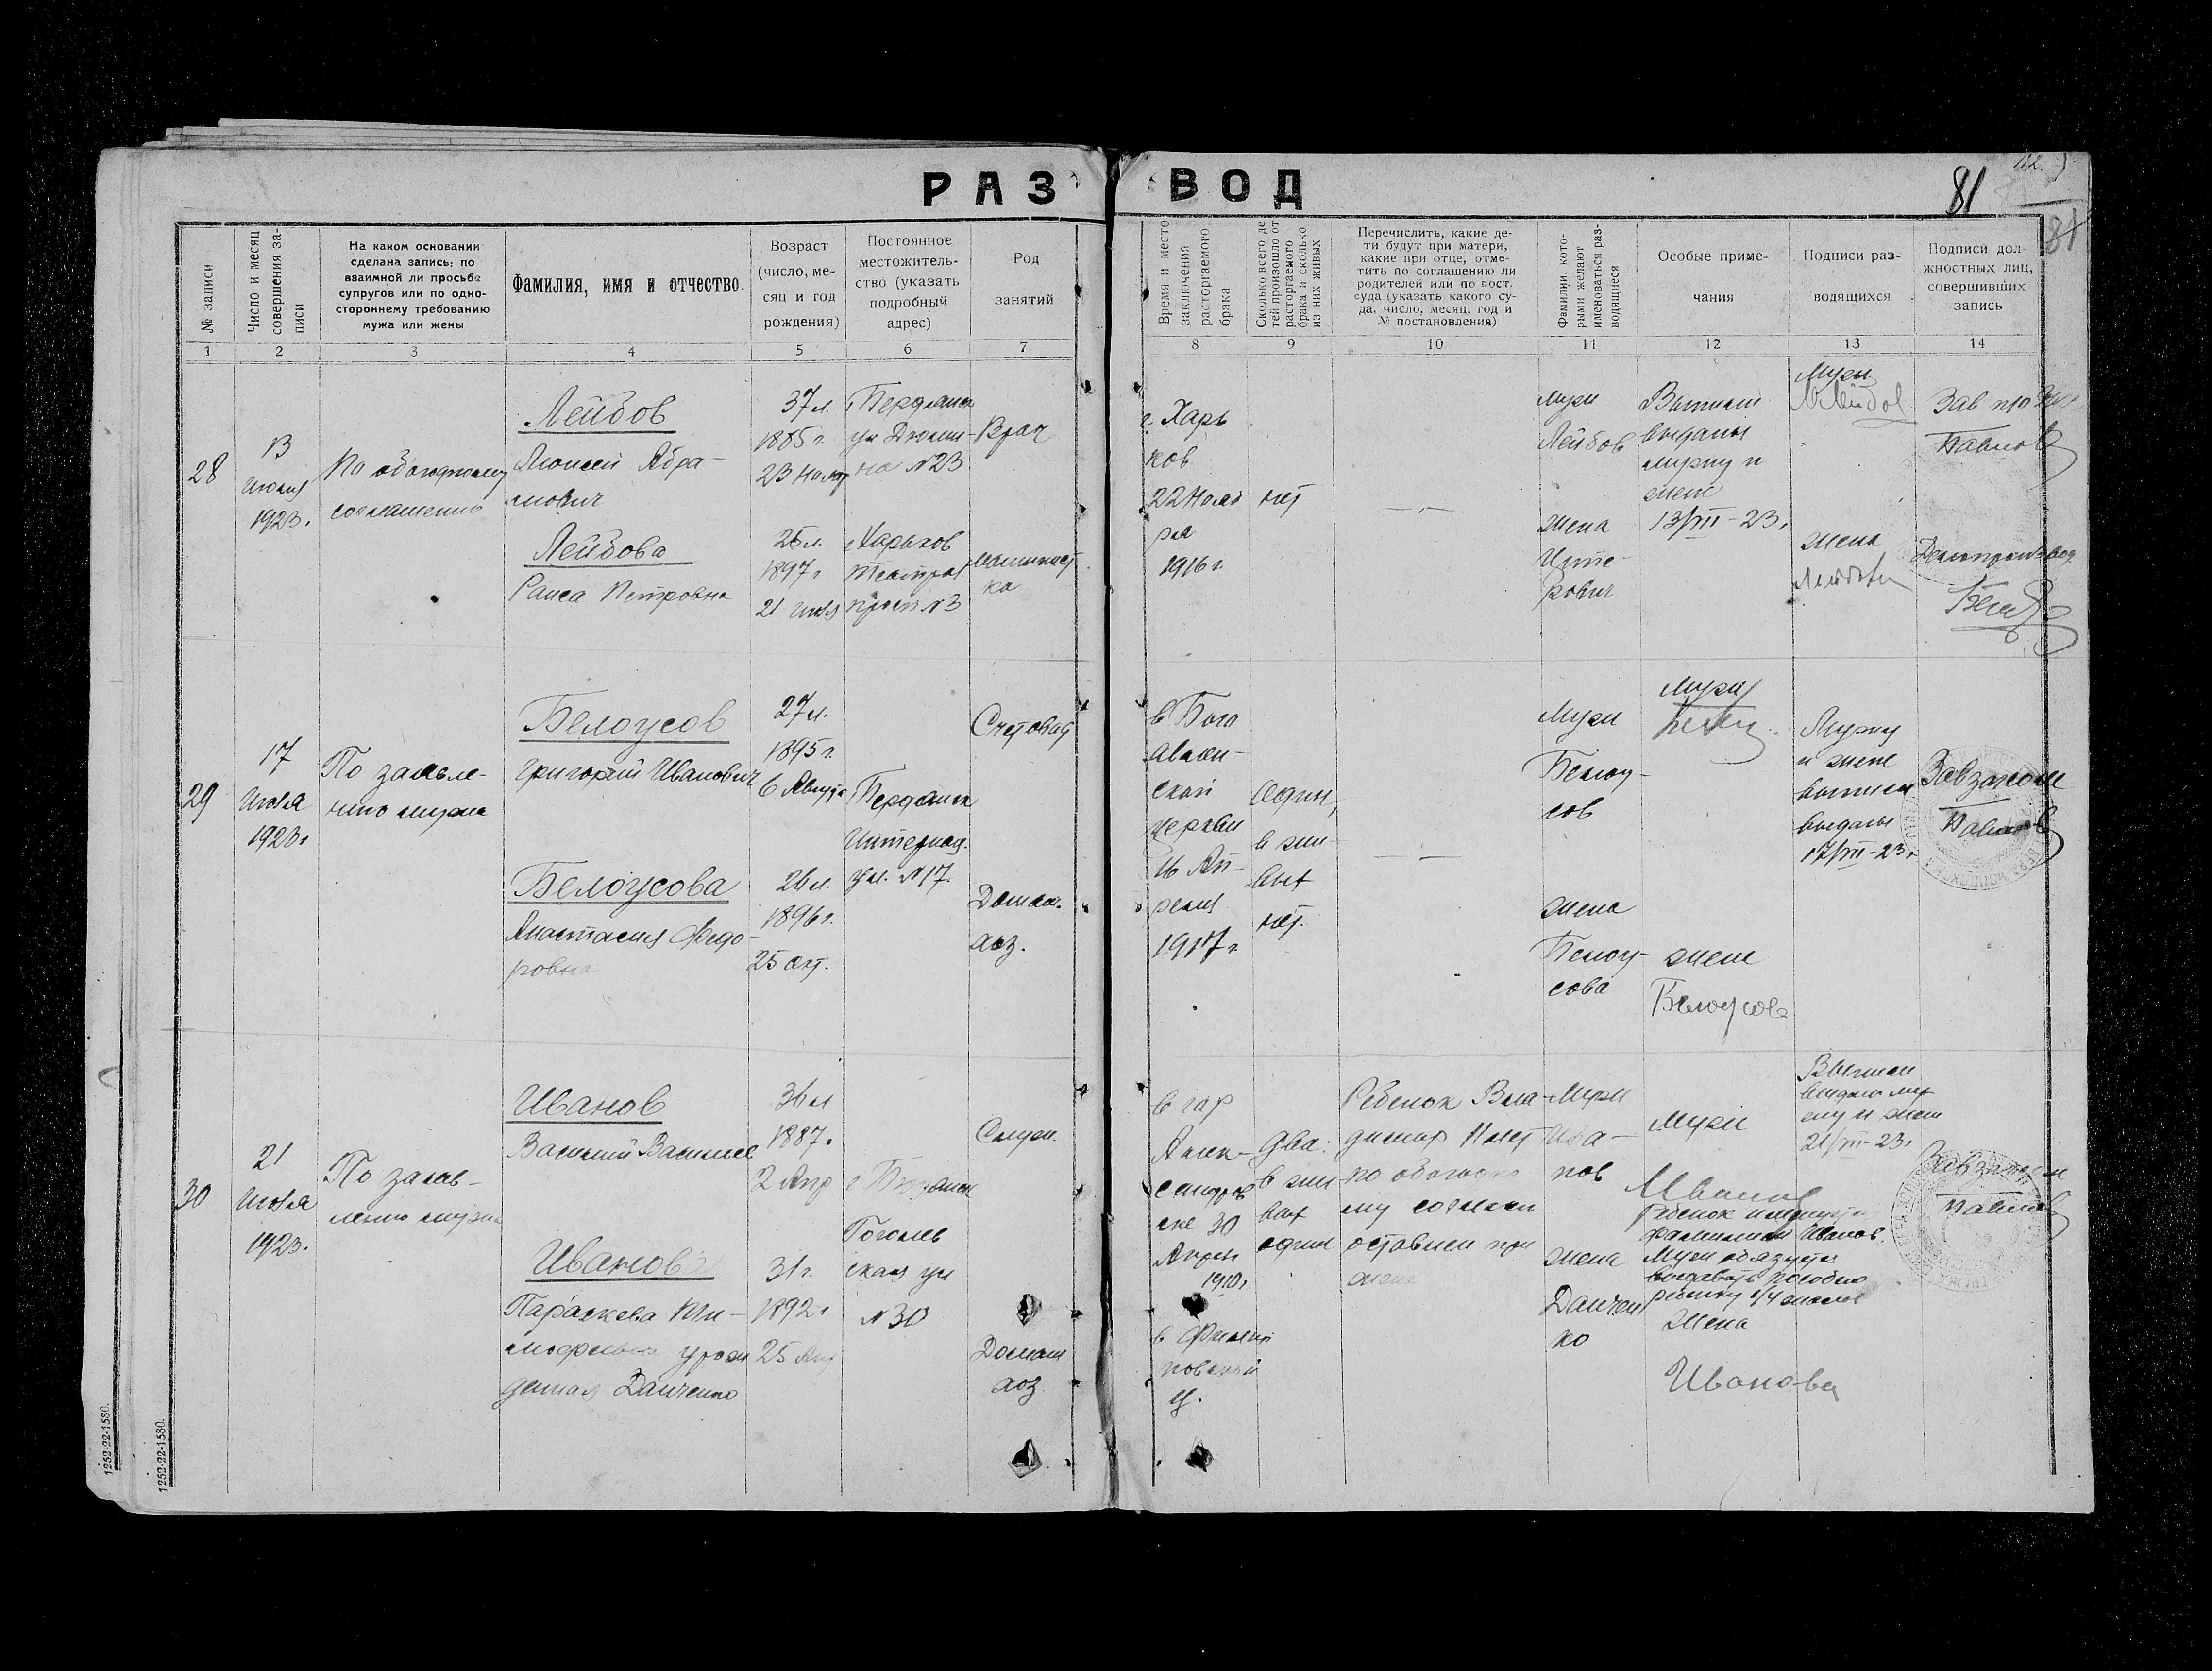 РАЗВОД
81
81
№ записи
Число и месяц
совершения за-
писи
На каком основании
сделана запись: по
взаимной ли просьбе
супругов или по одно-
стороннему требованию
мужа или жены
Фамилия, имя и отчество.
Возраст
(число, ме-
сяц и год
рождения)
Постоянное
местожитель-
ство (указать
подробный
адрес)
Род
занятий
Время и место
заключения
расторгаемого
брака
Сколько всего де
тей произошло от
расторгаемого
брака и сколько
из них живых
Перечислить, какие де-
ти будут при матери,
какие при отце, отме-
тить по соглашению ли
родителей или по пост.
суда (указать какого су-
да, число, месяц, год и
№ постановления)
Фамилии, кото-
рыми желают
именоваться раз-
водящиеся
Особые приме-
чания
Подписи раз-
водящихся
Подписи дол-
жностных лиц,
совершивших
запись
1 2 3 4 5 6 7 8 9 10 11 12 13 14
28
13
Июля
1923.
По обоюдному
соглашению
Лейбов
Моисей Абра-
мович
Лейбова
Раиса Петровна
37 л.
1885 г.
23
26 л.
1897 г
21
Бердянск
ул
№ 23
Харьков
№ 3
Врач
машинист
ка
г. Харь
ков
22 Нояб
ря
1916 г
нет
муж
Лейбов
жена
Выписи
выданы
мужу и
жене
13/VII-23.
Муж
жена
Лейбова
Павлов
Делопроизвод
29
17
Июля
1923.
По заявле-
нию мужа
Белоусов
Григорий Иванович
Белоусова
Анастасия Федо-
ровна
27 л.
1895 г.
6 Августа
26 л.
1896 г.
25 окт.
Бердянск
Интернац.
ул. № 17.
Счетовод
Домаш.
хоз.
церкви
16 Ап-
реля
1917 г
Один,
в жи-
вых
нет.
Муж
Белоу-
сов
жена
Белоу-
сова
муж
жена
Белоусова
Мужу
и жене
выписи
выданы
17/VII-23.
Павлов
30
21
Июля
1923.
По заяв-
лению мужа
Иванов
Василий Василье
Иванова
Параскева Ти-
мофеевна урож
денная Данченко
36 л
1887.
2 Апр
31 г.
1892 г
25
г Бердянск
Гоголев
ская ул
№ 30
Служ.
Домаш
хоз
в гор
Алек-
сандров
ске 30
Апреля
1910 г
ц.
Два:
в жи
вых
один
Ребенок Вла-
димир
по обоюдно
му соглаш
оставлен при
жене
Муж
Ива-
нов
жена
Данчен
ко
муж
Иванов
Ребенок
фамилию Иванов.
Муж обязуется
выдавать пособие
ребенку
Жена
Иванова
Выписи
выданы му
жу и жене
21/VII-23.
Павлов
1252-22-1580.
1252-22-1580.